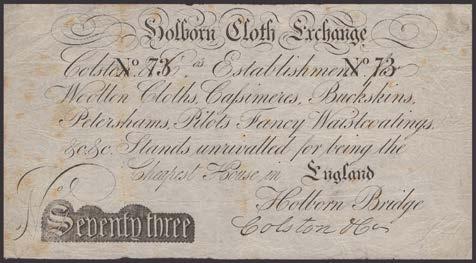 Holborn Cloth Exchange
Colston & Co's Establishment
No. 73 No. 73
Woollen Cloths, Cassimeres, Buckskins,
Petershams, Pilots Fancy Waistcoatings,
&c &c. Stands unrivalled for being the
Cheapest House in England
Holborn Bridge
No. Seventy three
Colston & Co